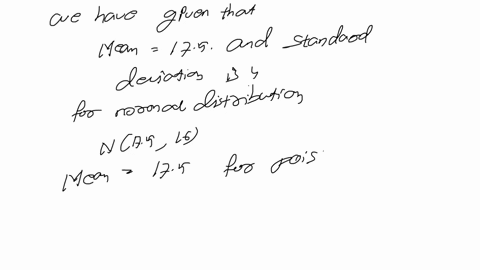 we have given that
Mean = 17.5. and standard
deviation is 4
for normal distribution
N(17.5, 16)
Mean = 17.5 for pois